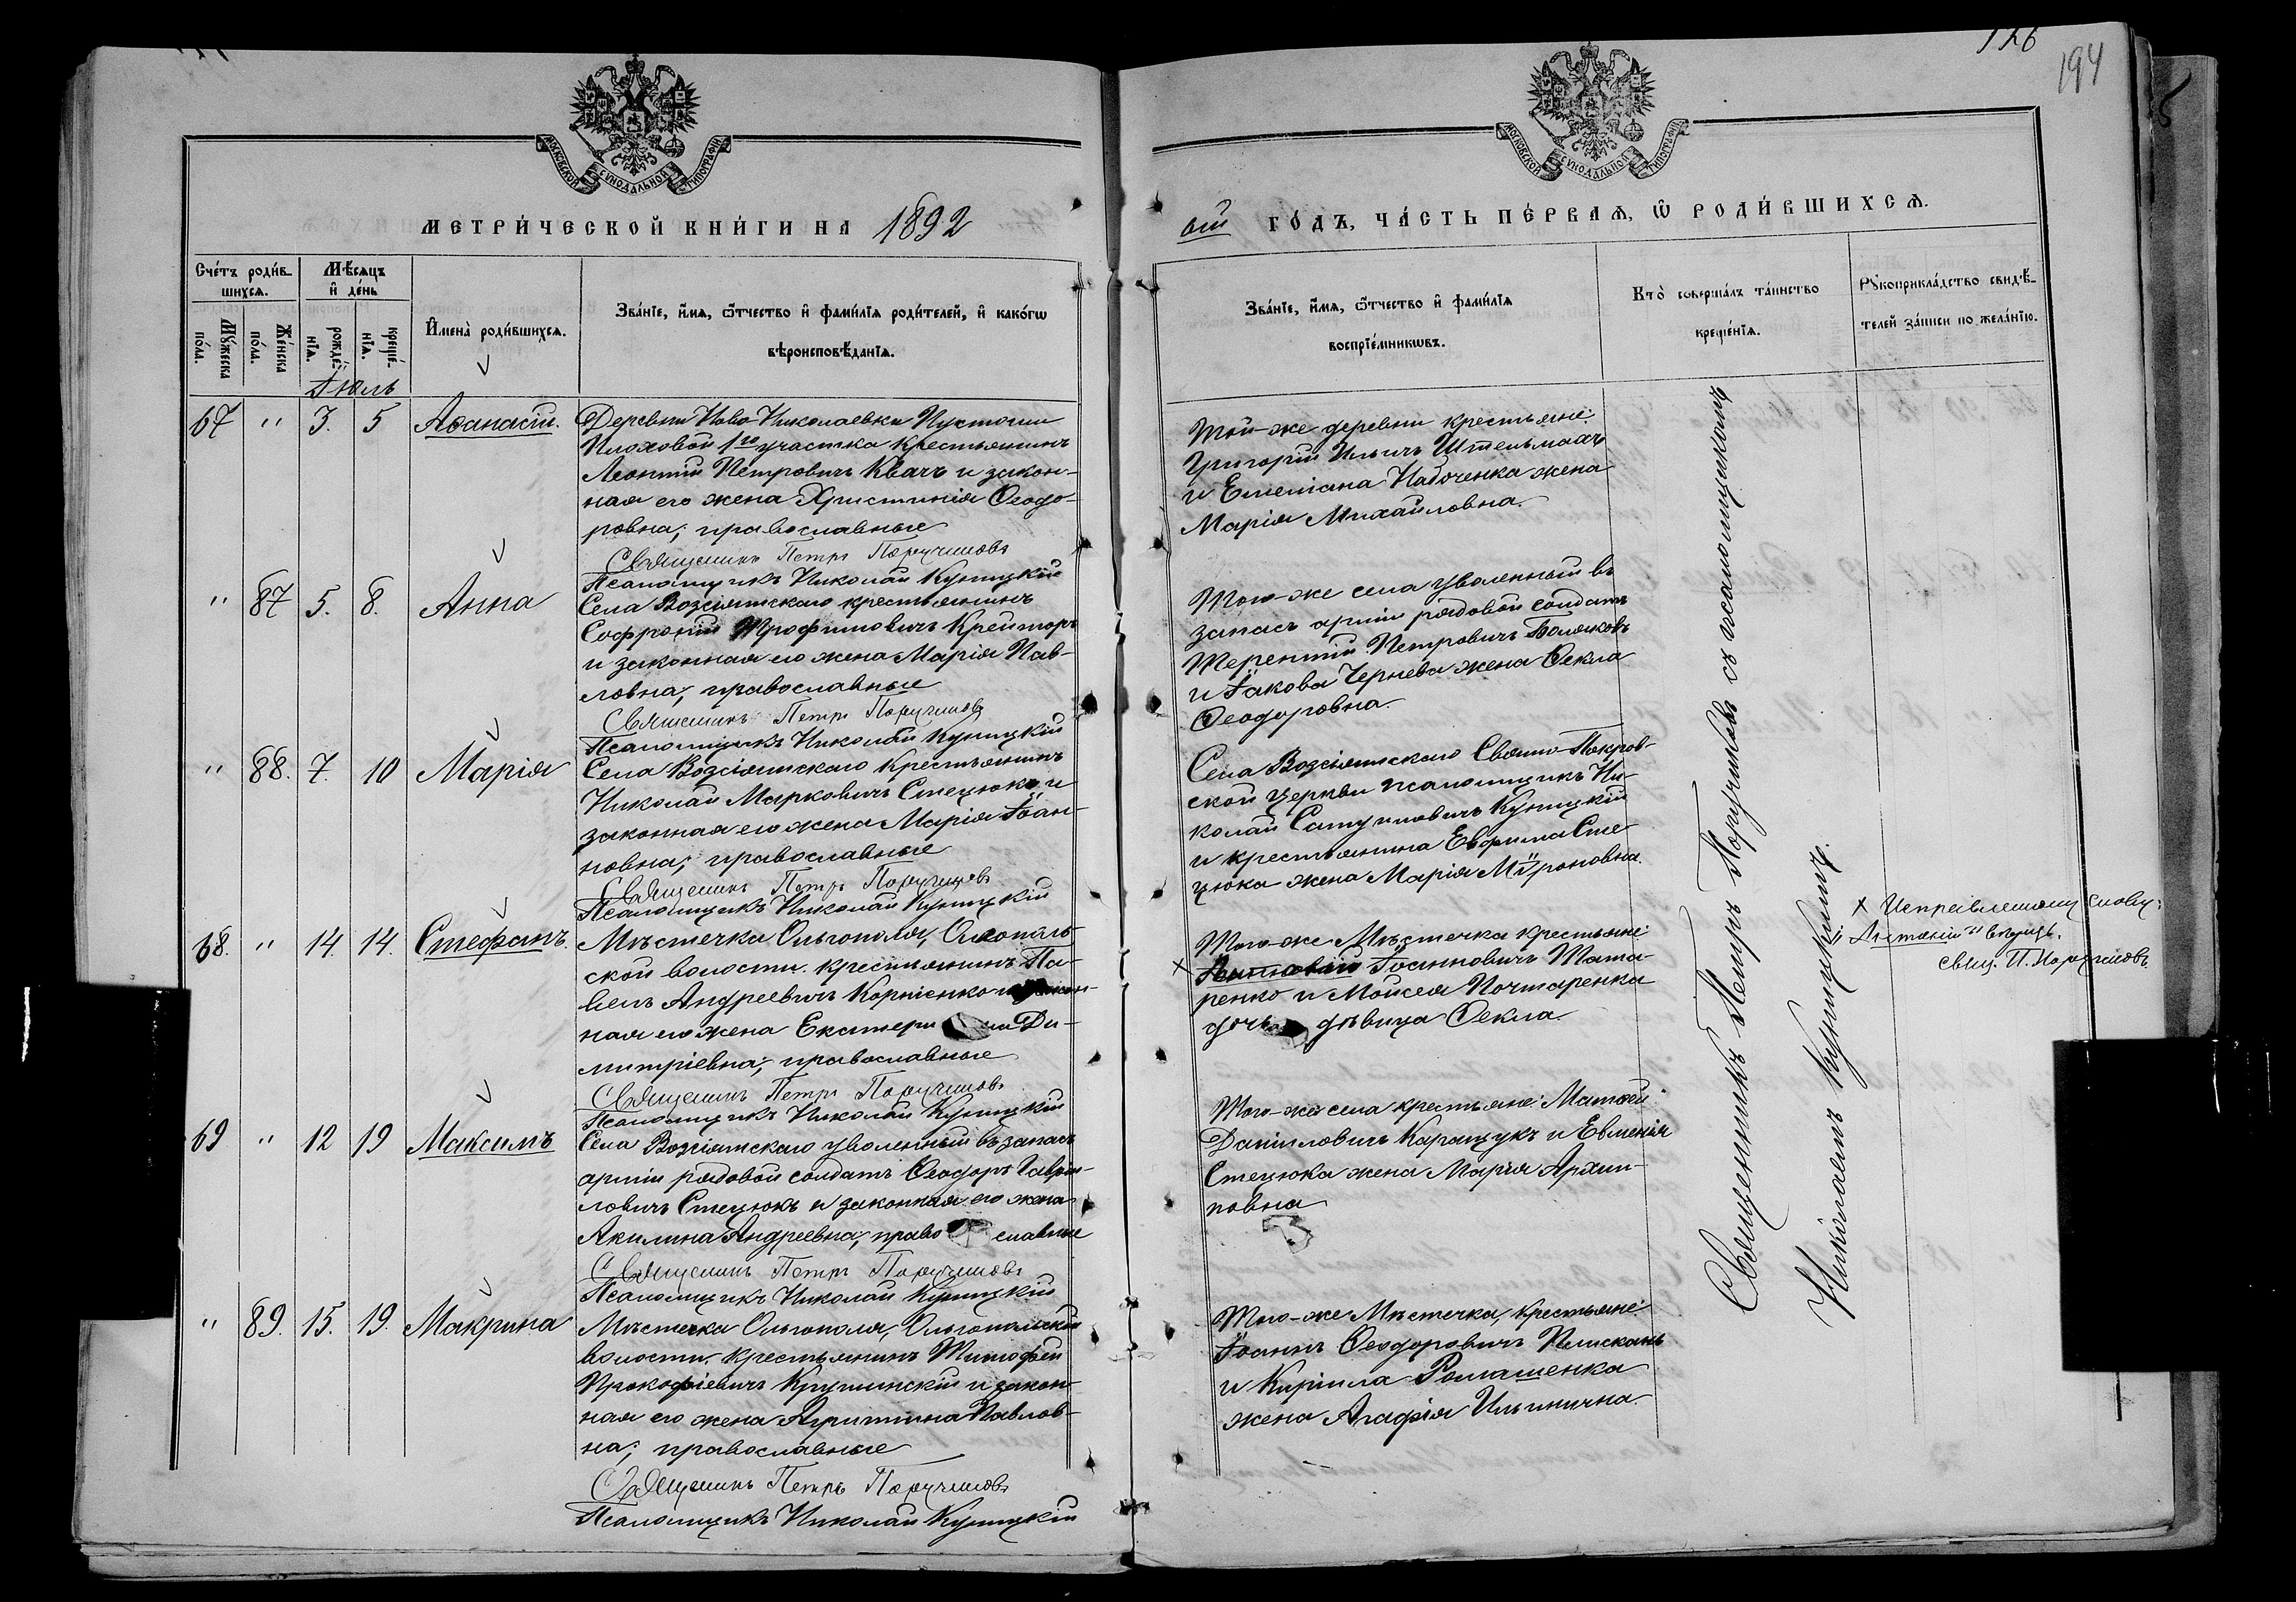 126
194
МОСКОВСКОЙ СѴНОДАЛЬНОЙ ТИПОГРАФІИ
МОСКОВСКОЙ СѴНОДАЛЬНОЙ ТИПОГРАФІИ
МЕТРИ́ЧЕСКОЙ КНИ́ГИ НА 1892
ой ГО́ДЪ, ЧА́СТЬ ПЕ́РВАѦ, Ѡ҆ РОДИ́ВШИХСѦ.
Сче́тъ роди́в-
шихсѧ.
Мѣ́сѧцъ
и҆ де́нь
Мꙋ́жеска
по́ла.
Же́нска
по́ла.
рожде́-
нїѧ.
креще́-
нїѧ.
И҆мена̀ роди́вшихсѧ.
Зва́нїе, и҆́мѧ, ѻ҆́тчество и҆ фами́лїѧ роди́телей, и҆ како́гѡ
вѣроисповѣ́данїѧ.
Зва́нїе, и҆́мѧ, ѻ҆́тчество и҆ фами́лїѧ
воспрїе́мникѡвъ.
Кто̀ соверша́лъ та́инство
креще́нїѧ.
Рꙋкоприкла́дство свидѣ́-
телей за́писи по жела́нїю.
Іюль
67 " 3. 5 Аѳанасій.
Деревни Ново-Николаевки Пустоши
Плоховой 1го участка крестьянинъ
Леонтій Петровичъ Квачъ и закон-
ная его жена Христинія Ѳеодо-
ровна; православные
Священникъ Петръ Поручиковъ
Псаломщикъ Николай Куницкій
Той-же деревни крестьяне:
Григорій Ильичъ Штельмахъ
и Емеліана Набоченка жена
Марія Михайловна.
" 87 5. 8. Анна
Села Возсіятскаго крестьянинъ
Софроній Трофимовичъ Крейторъ
и законная его жена Марія Пав-
ловна; православные
Священникъ Петръ Поручиковъ
Псаломщикъ Николай Куницкій
Того-же села уволенный въ
запасъ арміи рядовой солдатъ
Терентій Петровичъ Поляковъ
и Іакова Чернева жена Ѳекла
Ѳеодоровна.
" 88. 7. 10 Марія
Села Возсіятскаго крестьянинъ
Николай Марковичъ Стецюкъ и
законная его жена Марія Іоан-
новна; православные
Священникъ Петръ Поручиковъ
Псаломщикъ Николай Куницкій
Села Возсіятскаго Свято-Покров-
ской церкви псаломщикъ Ни-
колай Куницкій
и крестьянина Евфима Сте-
цюка жена Марія Мѵроновна.
68. " 14. 14. Стефанъ.
Мѣстечка Ольгополя, Ольгополь-
ской волости. крестьянинъ Па-
велъ Андреевичъ Корніенко и закон-
ная его жена Екатерина Ди-
митріевна; православные
Священникъ Петръ Поручиковъ
Псаломщикъ Николай Куницкій
Того-же Мѣстечка крестьяне:
+ Іоанновичъ Тата-
ренко и Моисея Почтаренка
дочь дѣвица Ѳекла.
+ Исправленному слову:
"Антоній" вѣрить.
свящ. П. Поручиковъ.
69 " 12 19 Максимъ
Села Возсіятскаго уволенный въ запасъ
арміи рядовой солдатъ Ѳеодоръ Гаврі-
ловичъ Стецюкъ и законная его жена
Акилина Андреевна; православные
Священникъ Петръ Поручиковъ
Псаломщикъ Николай Куницкій
Того-же села крестьяне: Матѳей
Даніиловичъ Каращукъ и Евменія
Стецюка жена Марія Архип-
повна
" 89. 15. 19. Макрина
Мѣстечка Ольгополя, Ольгопольской
волости. крестьянинъ Тимофей
Прокофіевичъ Круглинскій и закон-
ная его жена Агрипина Павлов-
на; православные
Священникъ Петръ Поручиковъ
Псаломщикъ Николай Куницкій
Того-же Мѣстечка, крестьяне:
Іоаннъ Ѳеодоровичъ Плисканъ
и Киріила Ромашенка
жена Агафія Ильинична.
Священникъ Петръ Поручиковъ съ псаломщикомъ
Николаемъ Куницкимъ.